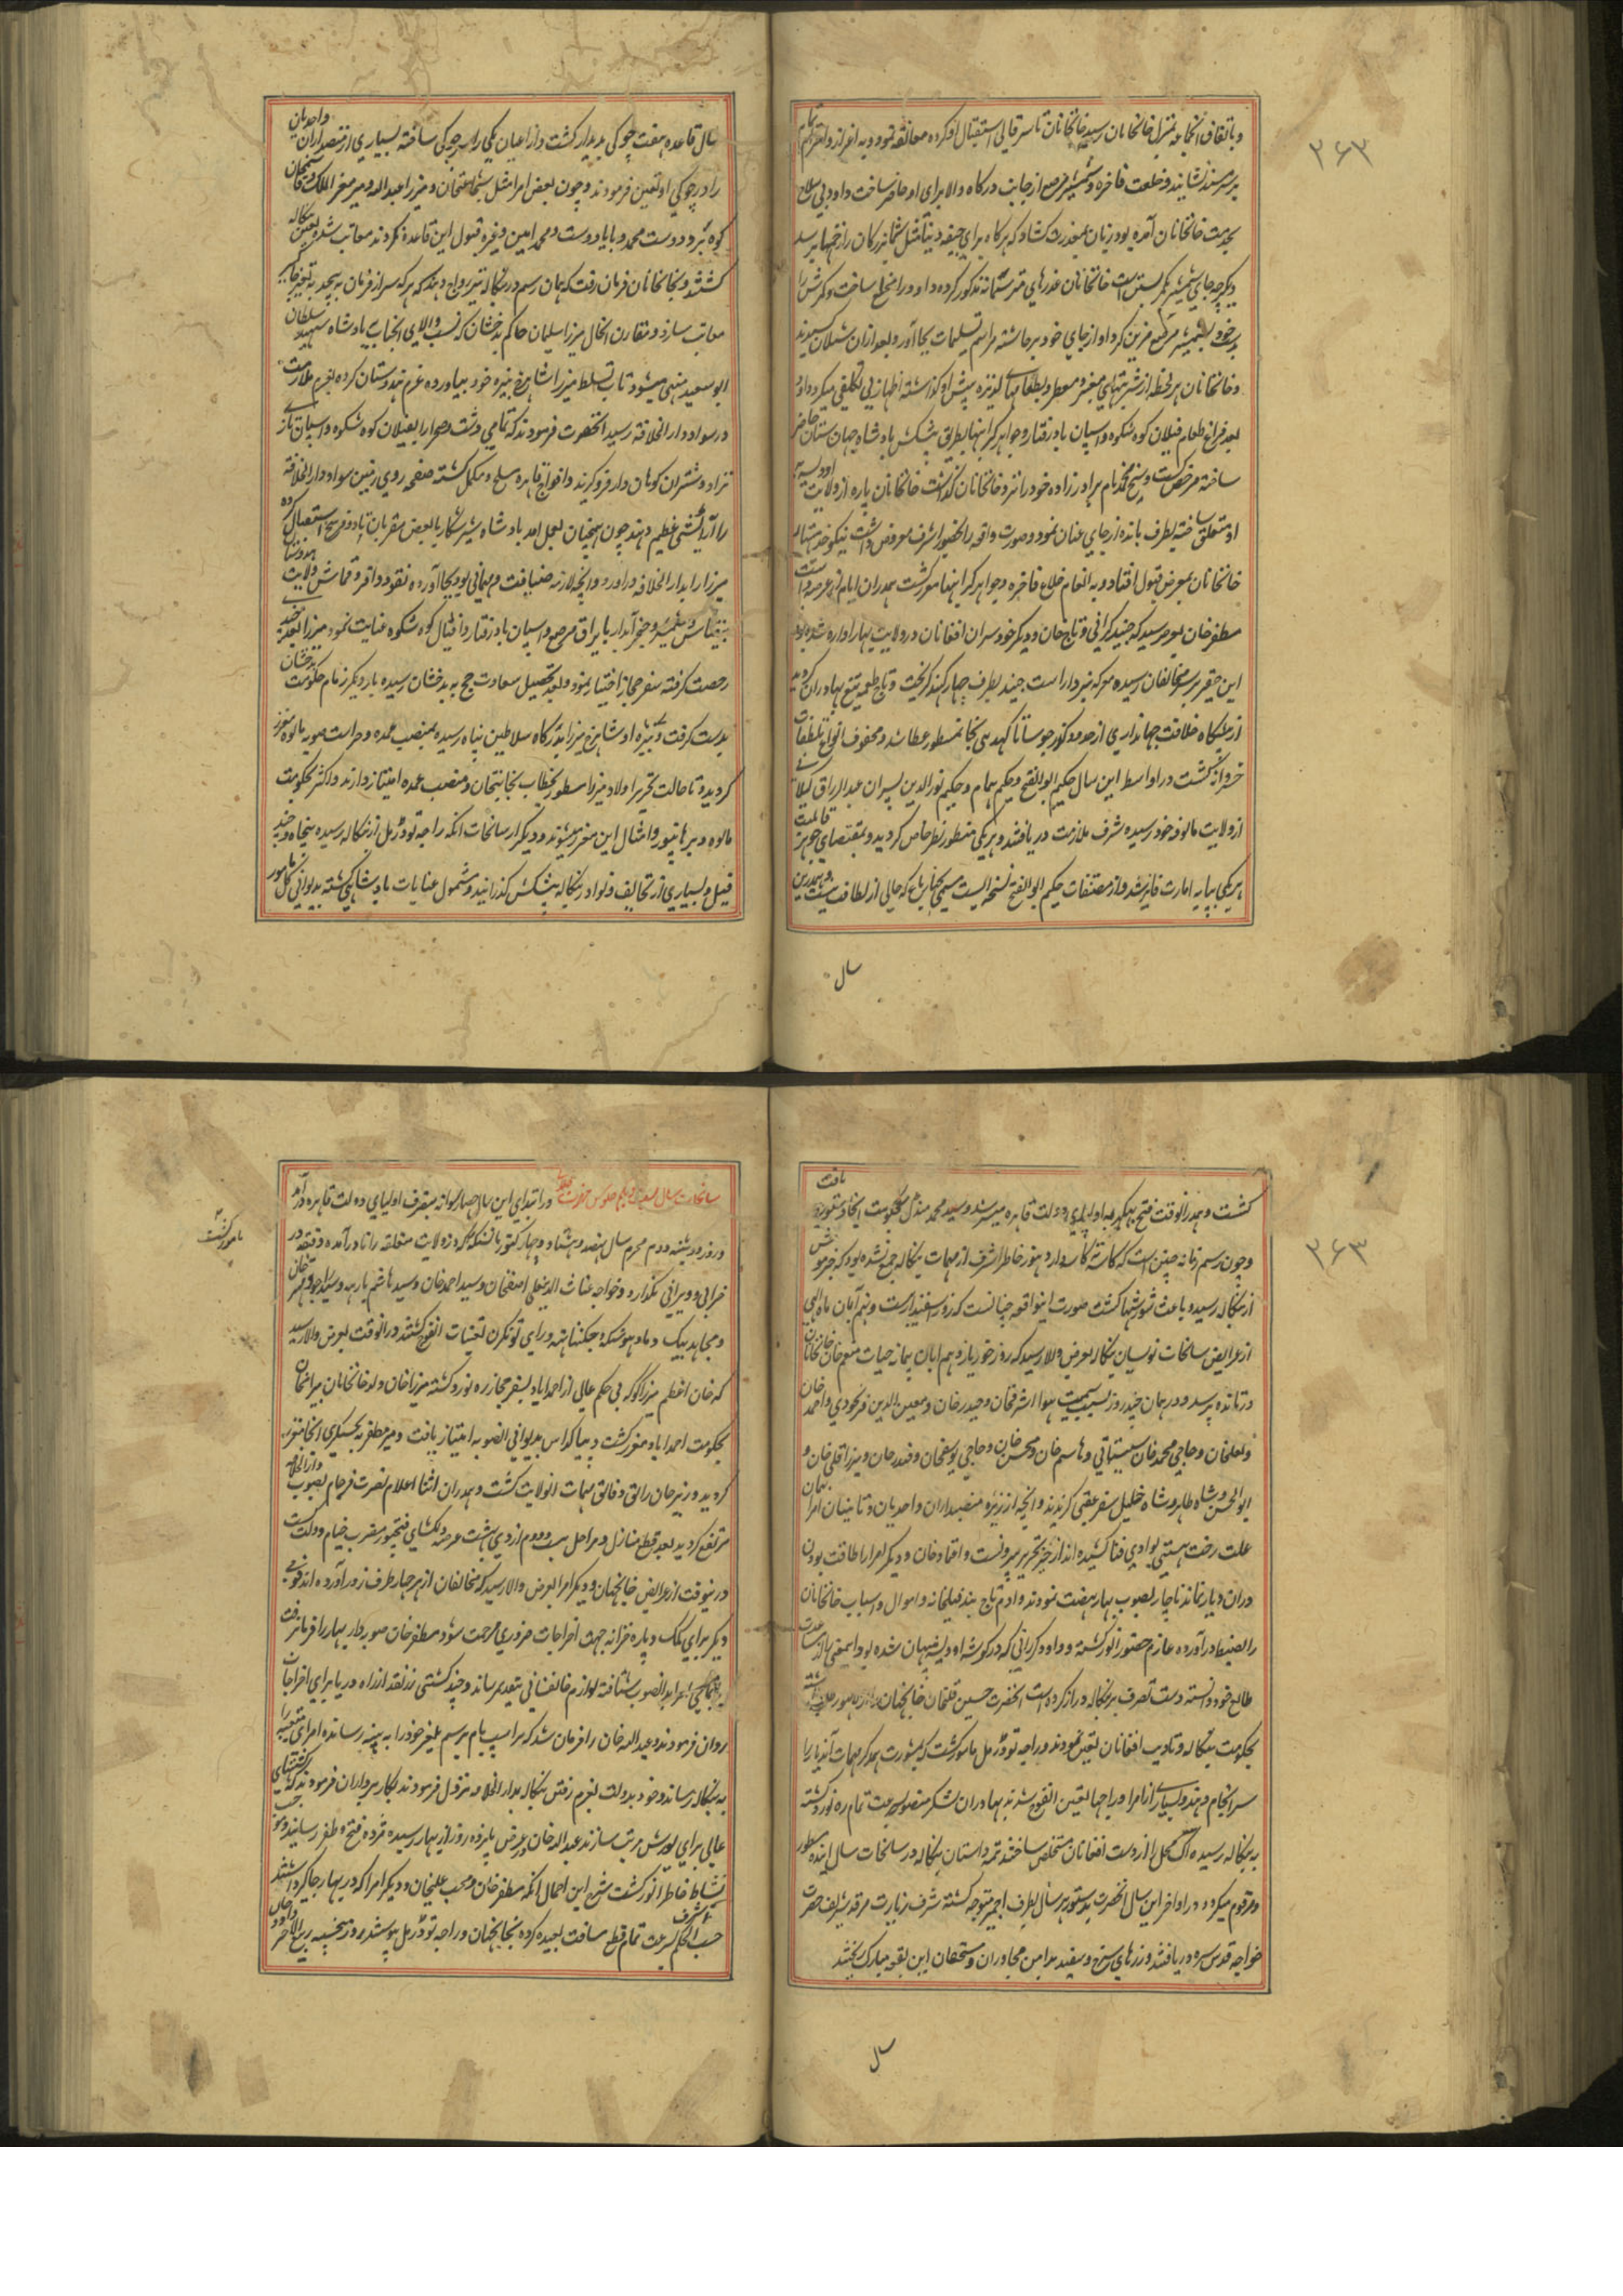 ۳۶۳
و باتفاق انجا به منزل خانخانان رسید خانخانان تا سر قالی استقبال او کرده معانقه نمود و به اعزاز و احترام تمام
بر سر مسند نشانید و خلعت فاخره و شمشیر مرصع از جانب درگاه والا برای او حاضر ساخت داود بی سلاح
بخدمت خانخانان آمده بود زبان بمعذرت کشاد که هرگاه برای جیفه دنیا مثل شما بزرگان را زخمها برسد
دیگر چه جای شمشیر بکمر بستن است خانخانان عذرهای
خود بشمشیر مرصع مزین کرد او از جای خود برخاسته مراسم تسلیمات بجا آورد و بعد ازان شیلان کشیدند
و خانخانان هر لحظه از شربتهای معنبر و معطر و بطعامهای لذیذه پیش او گذاشته اظهار بی تکلفی میکرد داود
بعد فراغ طعام فیلان کوه شکوه و اسپان بادرفتار و جواهر گرانبها بطریق پیشکش بادشاه جهان ستان حاضر
ساخته مرخص گشت و شیخ محمد نام برادرزاده خود را نزد خانخانان گذاشت خانخانان پاره از ولایت اودیسه
او متعلق ساخته بطرف تانده از جای عنان نمود و صورت واقعه را بحضور اشرف معروض داشت نیکو خدمتیهای
خانخانان بمعرض قبول افتاد و به انعام خلاع فاخره و جواهر گرانبها سامور گشت هم دران ایام از عرضه داشت
مظفر خان بعرض رسید که جنید کرانی و تاج خان و دیگر خودسران افغانان در ولایت بهار آواره شده بودند
این حقیر بر سر مخالفان رسیده معرکه نبرد آراست جنید بطرف جهارکند گریخت و تاج طعمه تیغ بهادران گردید
از پیشگاه خلافت جهانداری از حدود کذر جوسا تا کهدسی بجاگیر مسطور عطا شد و محفوف انواع تلطفات
خسروانه گشت در اواسط این سال حکیم ابوالفتح و حکیم همام و حکیم نورالدین پسران عبدالرزاق گیلانی
از ولایت مالوفه خود رسیده شرف ملازمت دریافتند و هر یکی منظور نظر خاص گردید و بمقتضای جوهر قابلیت
هر یکی بپایه امارت فایز شد و از مصنفات حکیم ابوالفتح نسخه ایست مسمی بچارباغ که خالی از لطافت نیست و همدرین
سال
سال قاعده هفت چوکی پدیدار گشت و از اعیان یکی را سر چوکی ساخته بسیاری از منصبداران و احدیان
را در چوکی او تعین فرمودند و چون بعض امرا مثل شجاعتخان و میرزا عبدالله و میر معزالملک و قاسمخان
کوه بر و دوست محمد و بابا دوست و محمد امین و غیره قبول این قاعده نکردند معاتب شده بتعین بنگاله
گشتند و بخانخانان فرمان رفت که همان رسم در بنگاله نیز رواج دهند که هر که سر از فرمان به پیچد به تغیر جاگیر
معاتب سازد و مقارن الحال میرزا سلیمان حاکم بدخشان که نسب والای انجناب به بادشاه شهید سلطان
ابوسعید منتهی میشود تاب تسلط میرزا شاهرخ نبیره خود نیاورده عزم هندوستان کرده بعزم ملازمت
در سواد دارالخلافه رسید انحضرت فرمودند که تمامی دشت و صحرا را بفیلان کوه شکوه و اسپان تازی
نژاد و شتران کوهان دار فرو گیرند و افواج قاهره مسلح و مکمل گشته صفحه روی زمین سواد دارالخلافه
را آرایشی عظیم دهند چون همچنان بعمل آمد بادشاه شیر شکار با بعض مقربان تا دو فرسخ استقبال کرده
میرزا را بدارالخلافه در آورد و آنچه لازمه ضیافت و مهمانی بود بجا آورده نقود وافره و قماش ولایت هندوستان
بیقیاس و شمشیر و خنجر آبدار با یراق مرصع و اسپان بادرفتار و افیال کوه شکوه عنایت نمود میرزا بعد چندی
رخصت گرفته سفر حجاز اختیار نمود و بعد تحصیل سعادت حج به بدخشان رسیده بار دیگر زمام حکومت بدخشان
بدست گرفت و نبیره او شاهرخ میرزا بدرگاه سلاطین پناه رسیده بمنصب عمده و حراست صوبه مالوه معزز
گردید و تا حالت تحریر اولاد میرزا مسطور بخطاب نجابتخان و منصب عمده امتیاز دارند و اکثر بحکومت
مالوه و برهانپور و امثال این معزز میشوند و دیگر از سانحات آنکه راجه تودرمل از بنگاله رسیده پنجاه و چند
فیل و بسیاری از تحایف و نوادر بنگاله پیشکش گذرانید و مشمول عنایات بادشاهی گشته بدیوانی کل مامور
۳۶۳
گشت و همدر انوقت فتح بهکر به اولیای دولت قاهره میسر شد و سید محمد میرعدل بحکومت انجا دستوری یافت
و چون رسم زمانه چنین است که
از بنگاله رسیده باعث شورشها گشت صورت اینواقعه چنانست که روز اسفندارست و نهم آبان ماه الهی
از عرایض سانحات نویسان بنگاله بعرض والا رسید که روز خور یازدهم ابان پیمانه حیات منعم خان خانخانان
در تانده پر شد و در همان چند روز بسبب سمیت هوا اشرفخان و حیدر خان و معین الدین فرنخودی واحمد خان
و لعلخان و حاجی محمد خان سیستانی و هاشم خان و محسن خان و حاجی یوسفخان و قندزخان و میرزا قلی خان و
ابوالحسن و شاه طاهر و شاه خلیل سفر عقبی گزیدند و آنچه از زیزه منصبداران و احدیان و تابینان امرا بهمان
علت رخت هستی بوادی فنا کشیده اند از خیز تحریر بیرونست و اعتماد خان و دیگر امرا را طاقت بودن
دران دیار نماند ناچار بصوب بهار نهضت نمودند و ادم تاج بند فیلخانه و اموال و اسباب خانخانان
را بضبط در آورده عازم حضور انور گشته و داود کرانی که در گوشه اودیسه پنهان شده بود اینمعنی را از مساعدت
طالع خود دانسته دست تصرف بر بنگاله دراز کرده است انحضرت حسین قلیخان خانجهان
بحکومت بنگاله و تادیب افغانان تعین نمودند و راجه تودرمل مامور گشت که بمشورت همدگر مهمات آندیار را
سرانجام دهند و بسیاری از امرا و راجها بتعین انفوج شدند بهادران لشکر منصور بسرعت تمام ره نورد گشته
به بنگاله رسیده آک محل را از دست افغانان متخلص ساختند تتمه داستان بنگاله در سانحات سال اینده مسطور
و مرقوم میگردد در اواخر این سال انحضرت بدستور هر سال بطرف اجمیر متوجه گشته شرف زیارت مرقد شریف حضرت
خواجه قدس سره دریافتند و زرهای سرخ و سفید بدامن مجاوران و مستحقان این بقعه مبارک بخشیدند
سال
سانحات سال بیست و یکم جلوس حضرت در ابتدای این سال حصار سوانه بتصرف اولیای دولت قاهره در آمد
و روز دوشنبه دوم محرم سال نهصد و هشتاد و چهار
خرابی و ویرانی نگذارد و خواجه غیاث الدین علی اصفخان و سید احمد خان و سید هاشم بارهه و
و مجاهد بیک
که خان اعظم میرزا کوکه بی حکم عالی از احمداباد بسفر حجاز ره نورد گشته میرزا خان ولد خانخانان بیرامخان
بحکومت احمداباد مقرر گشت و بیاکداس بدیوانی انصوبه امتیاز یافت و میر مظفر به بخشیگری انجا معزز
گردید و وزیر خان راتق و فاتق مهمات انولایت گشت و همدران اثنا اعلام نصرت فرجام بصوب دارالخلافه
مرتفع گردید بعد قطع منازل و مراحل بست و دوم اردی بهشت عرصه دلکشای فتحپور مضرب خیام دولت
درینوقت از عرایض خانجهان و دیگر امرا بعرض والا رسید که مخالفان از هر چهار طرف زور آورده اند فوجی
دیگر برای کمک و پاره خزانه جهت اخراجات ضروری مرحمت شود مظفر خان صوبه دار بهار را فرمان رفت
روان فرمودند و عبدالله خان را فرمان شد که بر اسپ بام برسم یلغر خود را به پتنه رسانده امرای متعینه را
به بنگاله رساند و خود بدولت بعزم رفتن بنگاله بدارالخلافه نزول فرمودند بکارپردازان فرمودند که کشتیهای
عالی برای یورش مرتب سازند عبدالله خان بعرض پانزده روز از بهار رسیده مژده فتح و ظفر رسانید و موجب
نشاط خاطر انور گشت شرح این اجمال انکه مظفر خان و محب علیخان و دیگر امرا که در بهار جاگیر داشتند
حسب الحکم اشرف بسرعت تمام قطع مسافت بعیده کرده بخانجهان و راجه تودرمل پیوستند روز پنجشنبه ربیع الاخر و داود
مامور گشت